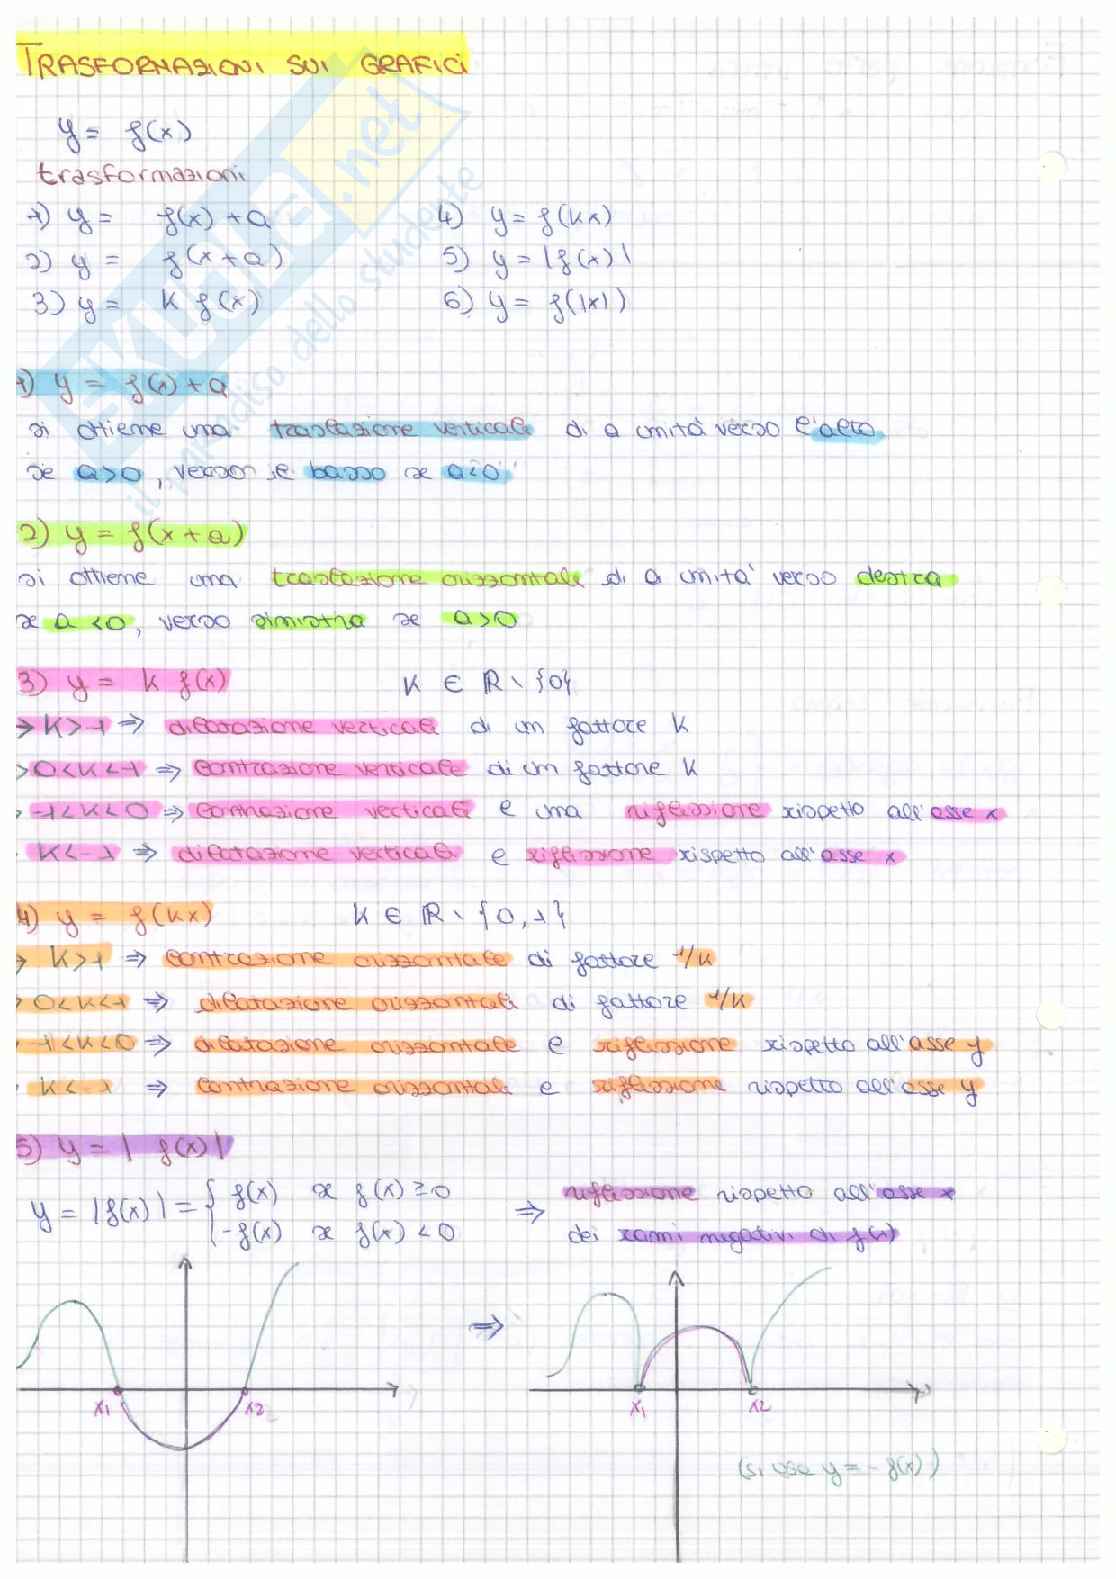 TRASFORMAZIONI SUI GRAFICI
y = f(x)
trasformazioni
1) y = f(x) + a
2) y = f(x+a)
3) y = k f(x)
4) y = f(kx)
5) y = |f(x)|
6) y = f(|x|)
1) y = f(x) + a
si ottiene una traslazione verticale di a unità verso l'alto
se a>0, verso il basso se a<0
2) y = f(x+a)
si ottiene una traslazione orizzontale di a unità verso destra
se a<0, verso sinistra se a>0
3) y = k f(x) K ∈ R \ {0}
→ K>1 ⇒ dilatazione verticale di un fattore K
> 0<K<1 ⇒ contrazione verticale di un fattore K
> -1<K<0 ⇒ contrazione verticale e una riflessione rispetto all'asse x
K<-1 ⇒ dilatazione verticale e riflessione rispetto all'asse x
4) y = f(kx) K ∈ R \ {0,1}
→ K>1 ⇒ contrazione orizzontale di fattore 1/K
> 0<K<1 ⇒ dilatazione orizzontale di fattore 1/K
-1<K<0 ⇒ dilatazione orizzontale e riflessione rispetto all'asse y
K<-1 ⇒ contrazione orizzontale e riflessione rispetto all'asse y
5) y = | f(x)|
y = |f(x)| = { f(x) se f(x) ≥0
-f(x) se f(x) <0
⇒ riflessione rispetto all'asse x
dei rami negativi di f(x)
⇒
x1 x2
x1 x2
(si usa y = -f(x))
SKUOLA.net
il paradiso dello studente